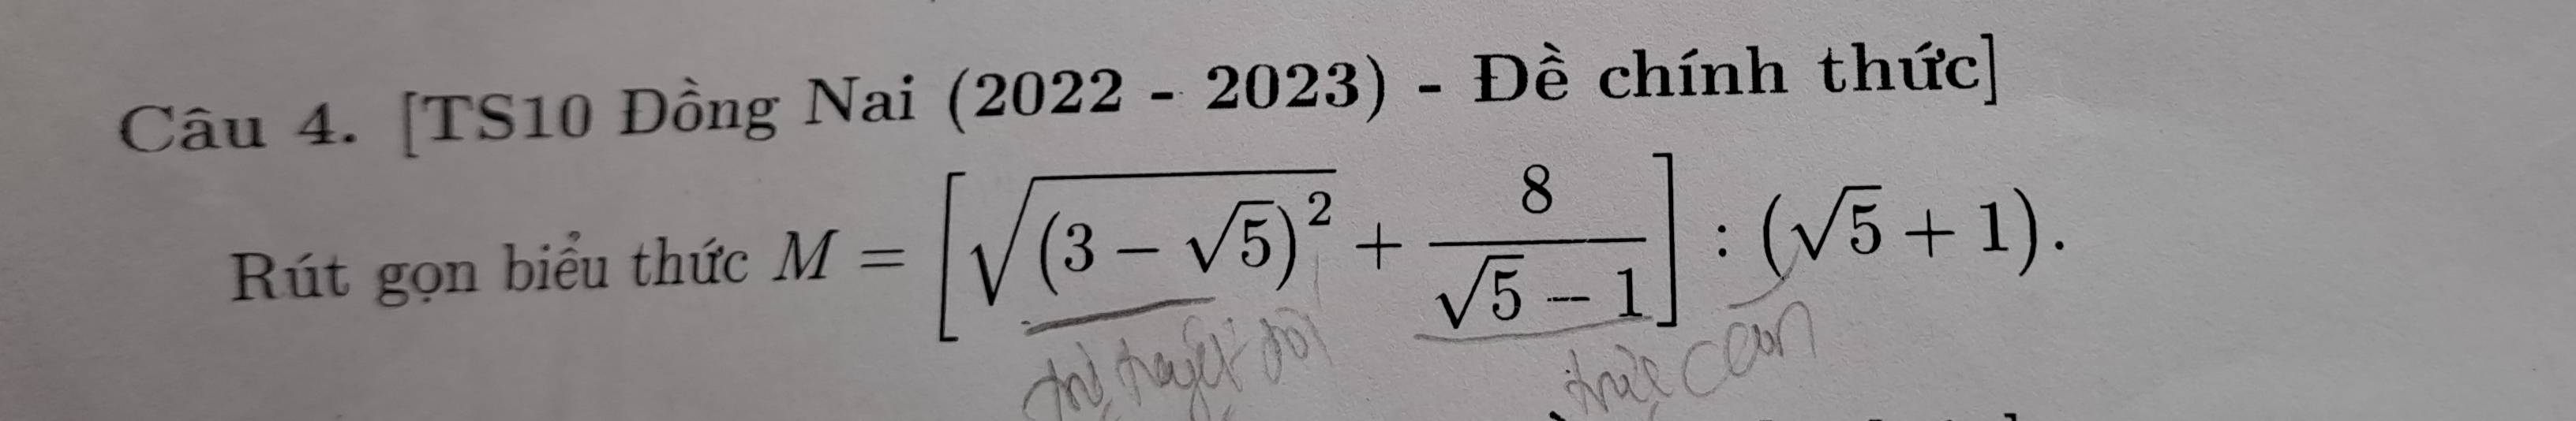 Câu 4. [TS10 Đồng Nai (2022 - 2023) - Đề chính thức]
Rút gọn biểu thức M = [√((3 − √5)²) + 8/(√5 − 1)] : (√5 + 1).
trị tuyệt đối trục căn